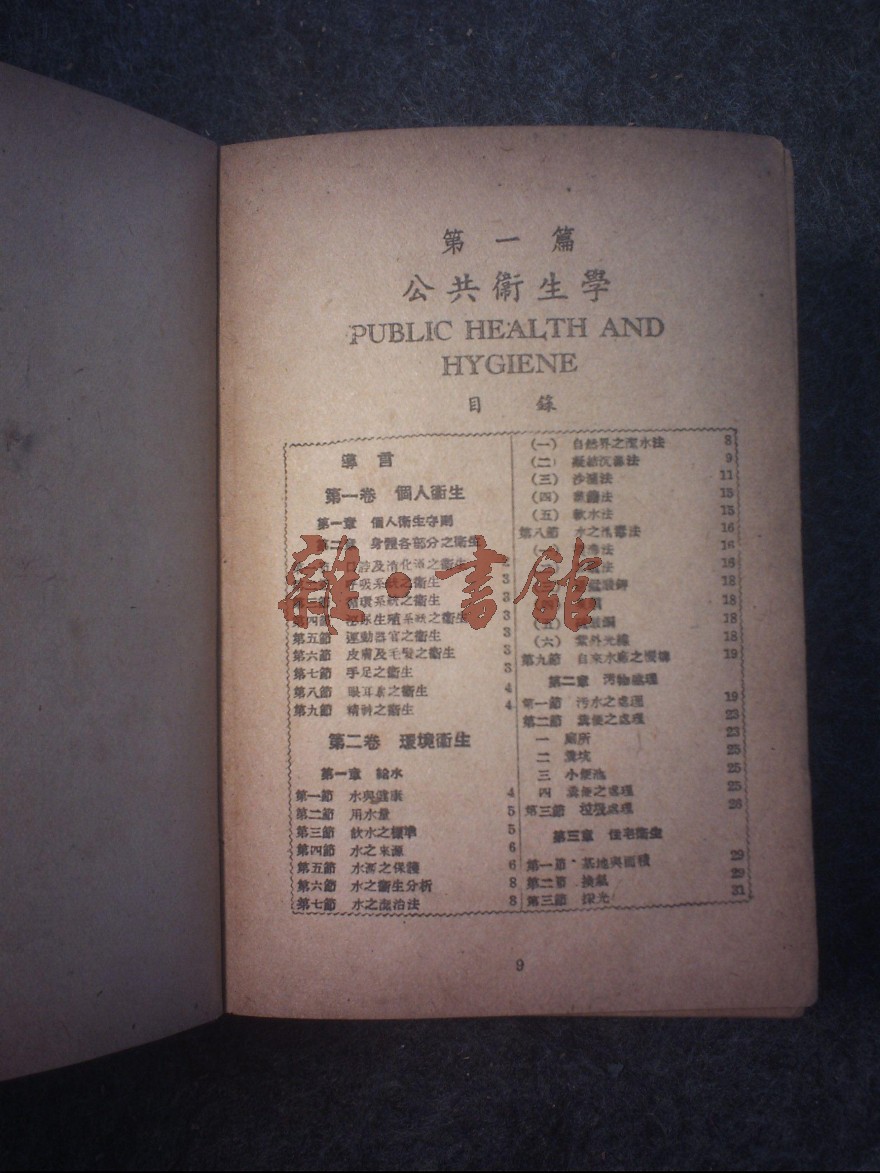 第一篇
公共衞生學
PUBLIC HEALTH AND
HYGIENE
目錄
導言
第一卷 個人衞生
第一章 個人衞生守則
第二章 身體各部分之衞生
及消化道之衞生 2
呼吸系統之衞生 3
循環系統之衞生 3
第四節 泌尿生殖系統之衞生 3
第五節 運動器官之衞生 3
第六節 皮膚及毛髮之衞生 3
第七節 手足之衞生 3
第八節 眼耳鼻之衞生 4
第九節 精神之衞生 4
第二卷 環境衞生
第一章 給水
第一節 水與健康 4
第二節 用水量 5
第三節 飲水之標準 5
第四節 水之來源 6
第五節 水源之保護 6
第六節 水之衞生分析 8
第七節 水之淨治法 8
(一) 自然界之潔水法 8
(二) 凝結沉澱法 9
(三) 沙濾法 11
(四) 法 15
(五) 軟水法 15
第八節 水之消毒法 16
法 16
法 16
錳酸鉀 18
18
(五) 18
(六) 紫外光線 18
第九節 自來水廠之 19
第二章 污物處理
第一節 污水之處理 19
第二節 糞便之處理 23
一 廁所 23
二 糞坑 25
三 小便池 25
四 糞便之處理 25
第三節 垃圾處理 26
第三章 住宅衞生
第一節 基地與面積 29
第二節 換氣 29
第三節 採光 31
9
雜·書館